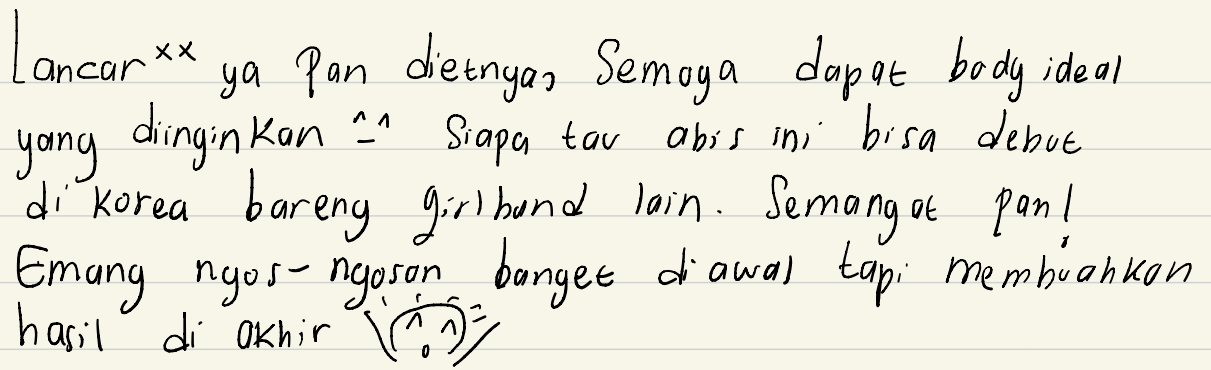 Lancar xx ya Pan dietnya, Semoga dapat body ideal
yang diinginkan ^_^ Siapa tau abis ini bisa debut
di korea bareng girlband lain. Semangat pan!
Emang ngos-ngosan banget di awal tapi membuahkan
hasil di akhir \(^o^)/